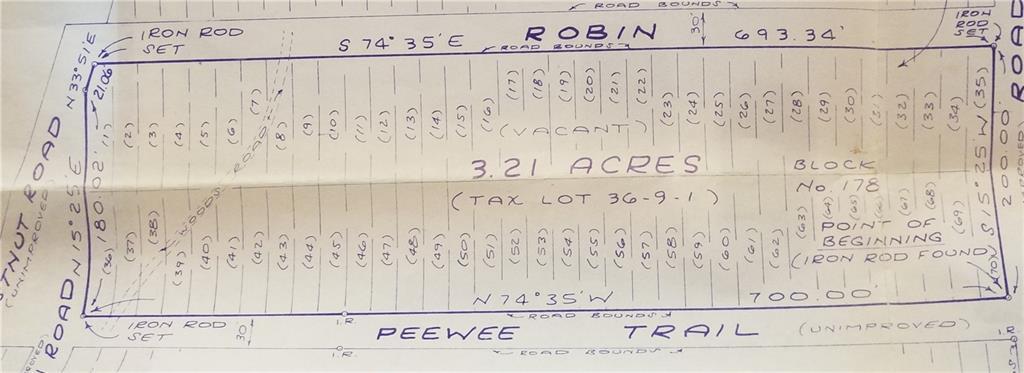 ROAD BOUNDS
IRON ROD
SET
S 74° 35' E
ROBIN
693.34'
30'
ROAD BOUNDS
IRON
ROD
SET
N 33° 51' E
21.06'
(1) (2) (3) (4) (5) (6) (7) (8) (9) (10) (11) (12) (13) (14) (15) (16) (17) (18) (19) (20) (21) (22) (23) (24) (25) (26) (27) (28) (29) (30) (31) (32) (33) (34) (35)
(VACANT)
3.21 ACRES
(TAX LOT 36-9-1)
BLOCK
No. 178
POINT OF
BEGINNING
(IRON ROD FOUND)
WOODS ROAD
N 15° 25' E 180.02'
S 15° 25' W
200.00'
ROAD
(36) (37) (38) (39) (40) (41) (42) (43) (44) (45) (46) (47) (48) (49) (50) (51) (52) (53) (54) (55) (56) (57) (58) (59) (60) (61) (62) (63) (64) (65) (66) (67) (68) (69) (70)
N 74° 35' W
700.00'
ROAD BOUNDS
IRON ROD
SET
30'
I.R.
PEEWEE TRAIL (UNIMPROVED)
I.R.
I.R.
ROAD BOUNDS
TNUT ROAD
(UNIMPROVED)
ROAD